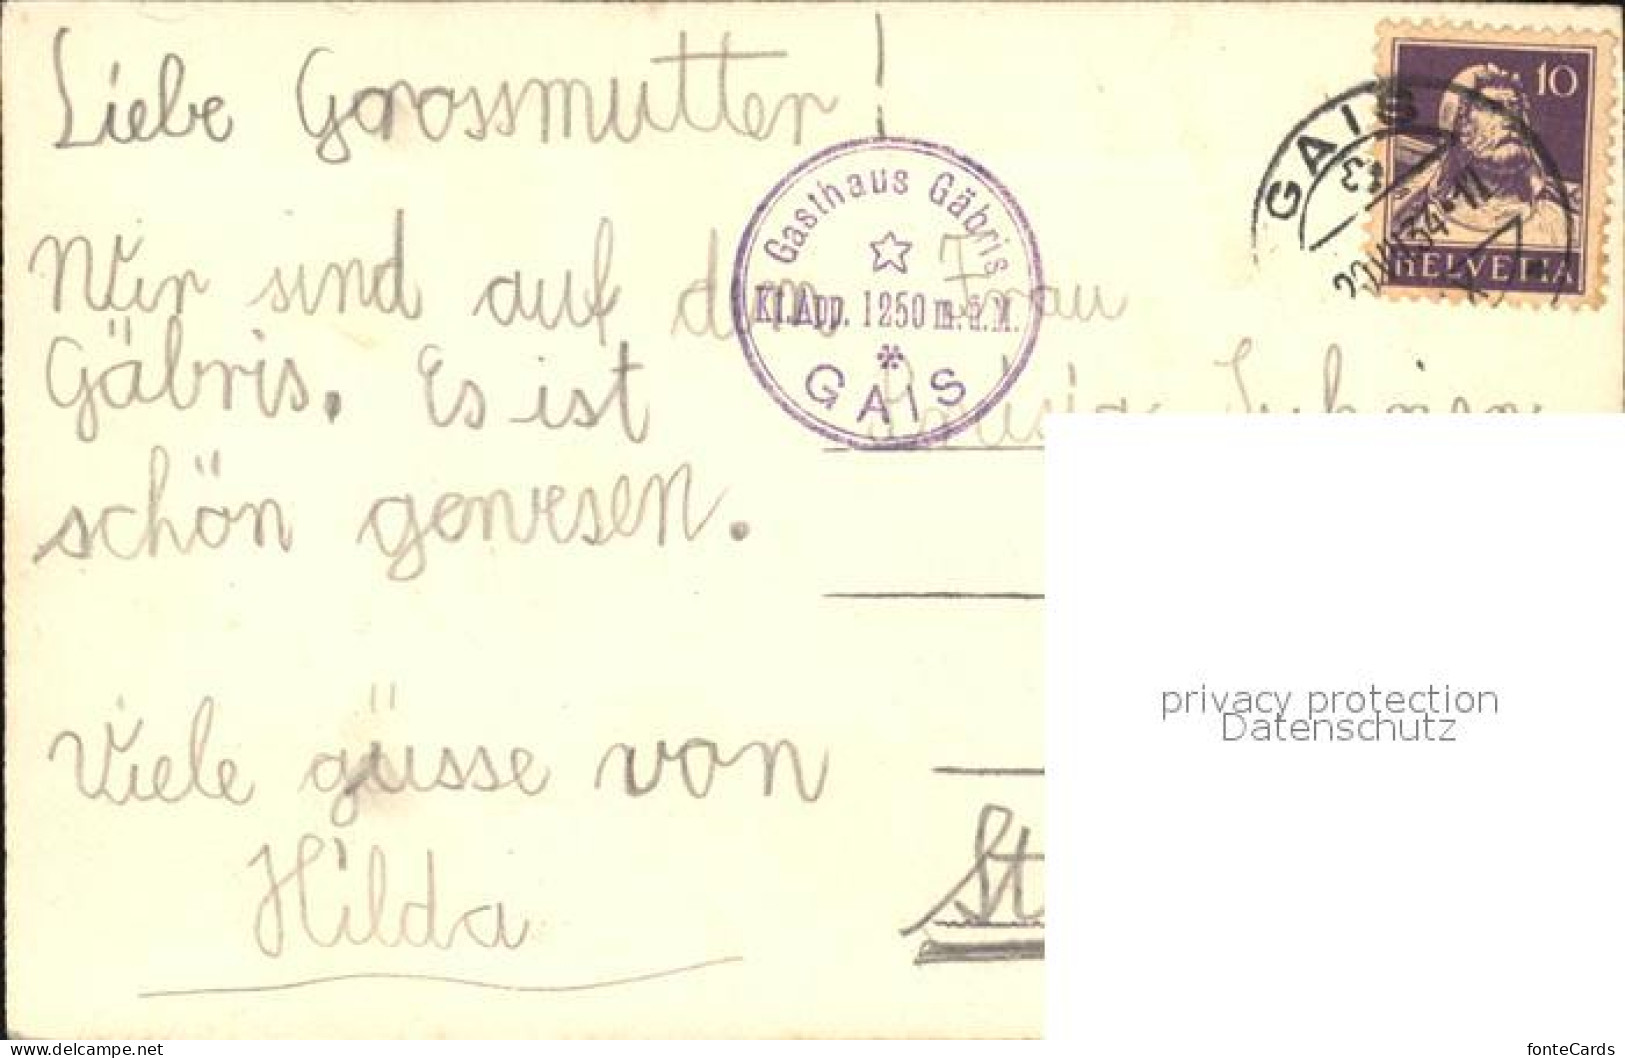 Liebe Gorossmutter!
Wir sind auf dem
Gäbris. Es ist
schön gewesen.
Viele güsse von
Hilda
Gasthaus Gäbris
Kt. App. 1250 m.ü.M.
GAIS
Frau
St
GAIS
34-17
10
HELVETIA
privacy protection
Datenschutz
www.delcampe.net
fonteCards